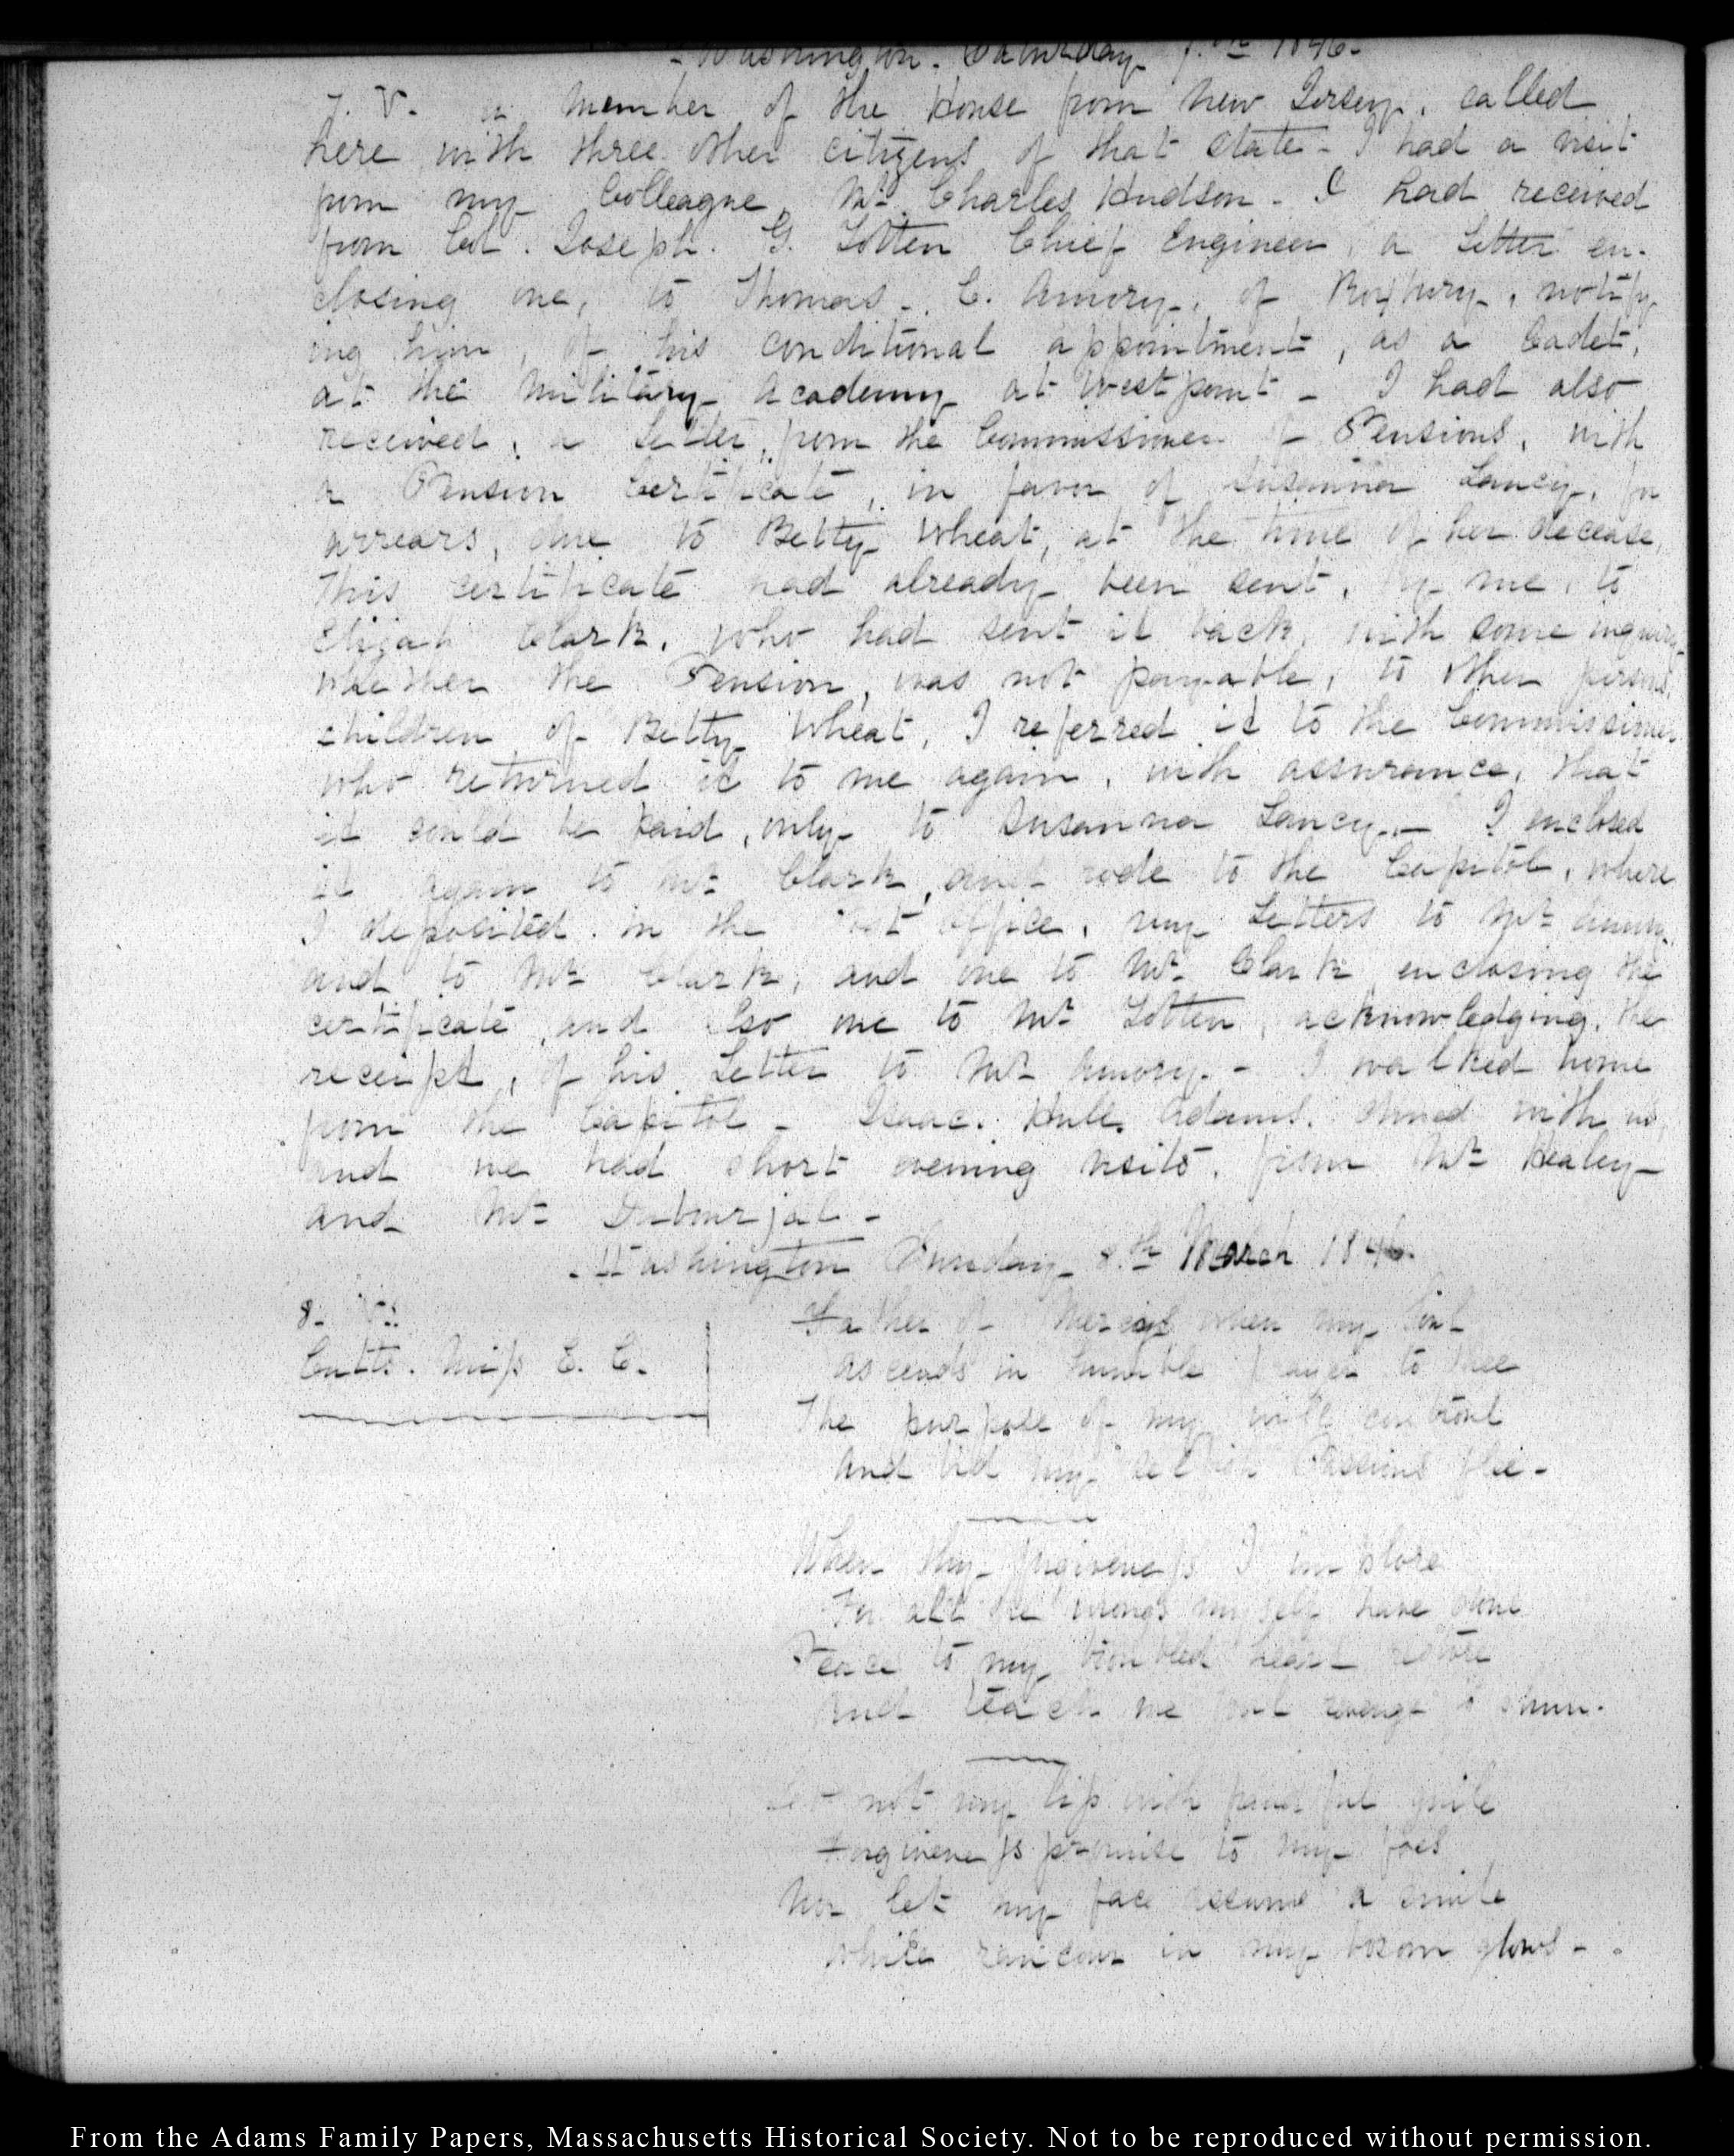 - Washington. Saturday 7.th 1846-
7. V. a member of the House from New Jersey, called
here with three other citizens of that State - I had a visit
from my Colleague, Mr. Charles Hudson - I had received
from Col. Joseph. G. Totten Chief Engineer, a Letter en-
closing one, to Thomas. C. Amory, of Roxbury, notify
ing him, of his conditional appointment, as a Cadet,
at the Military Academy at West point - I had also
received, a Letter, from the Commissioner of Pensions, with
a Pension Certificate, in favor of Susanna Lancy, for
arrears, due to Betty Wheat, at the time of her decease,
This certificate had already been sent, by me, to
Elijah Clark, who had sent it back, with some inquiry
whether the Pension, was not payable, to other persons,
children of Betty Wheat, I referred it to the Commissioner
who returned it to me again, with assurance, that
it could be paid, only to Susanna Lancy. - I enclosed
it again to Mr. Clark, and rode to the Capitol, where
I deposited in the Post office, my Letters to Mr. Amory
and to Mr. Clark, and one to Mr. Clark enclosing the
certificate, and also one to Mr. Totten, acknowledging, the
receipt, of his Letter to Mr. Amory. - I walked home
from the Capitol - Isaac. Hull. Adams. dined with us,
and we had short evening visits, from Mr. Healey
and Mr. Dubourjal -
Washington Sunday 8.th March 1846.
8. V:
Cutts. Miss E. C.
Father of Mercies when my Soul
Ascends in humble prayer to thee
The purpose of my will control
And bid my selfish Passions flee -
When thy forgiveness I implore
For all the wrongs myself have done
Peace to my troubled heart restore
And teach me foul revenge to shun.
Let not my lip with guile
Forgiveness promise to my foes
Nor let my face assume a smile
While rancour in my bosom glows -
From the Adams Family Papers, Massachusetts Historical Society. Not to be reproduced without permission.